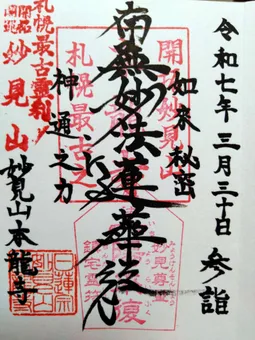 令和七年三月三十日 参詣
如来秘密
南無妙法蓮華経
神通之力
妙見山本龍寺
開拓妙見山
札幌最古之
札幌最古霊刹
開拓
妙見山
妙見尊
鎮宅霊
復
日蓮宗